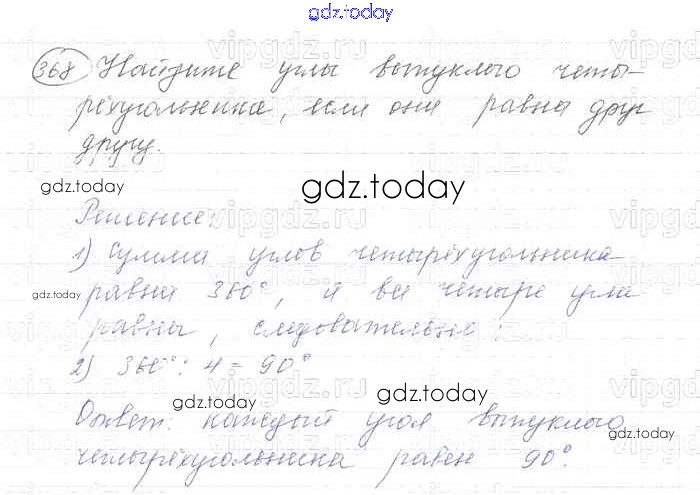 gdz.today
368 Найдите углы выпуклого четы-
рёхугольника, если они равны друг
другу.
gdz.today
gdz.today
Решение:
1) Сумма углов четырёхугольника
gdz.today
равна 360°, а все четыре угла
равны, следовательно:
2) 360° : 4 = 90°
gdz.today
gdz.today
Ответ: каждый угол выпуклого
gdz.today
четырёхугольника равен 90°.